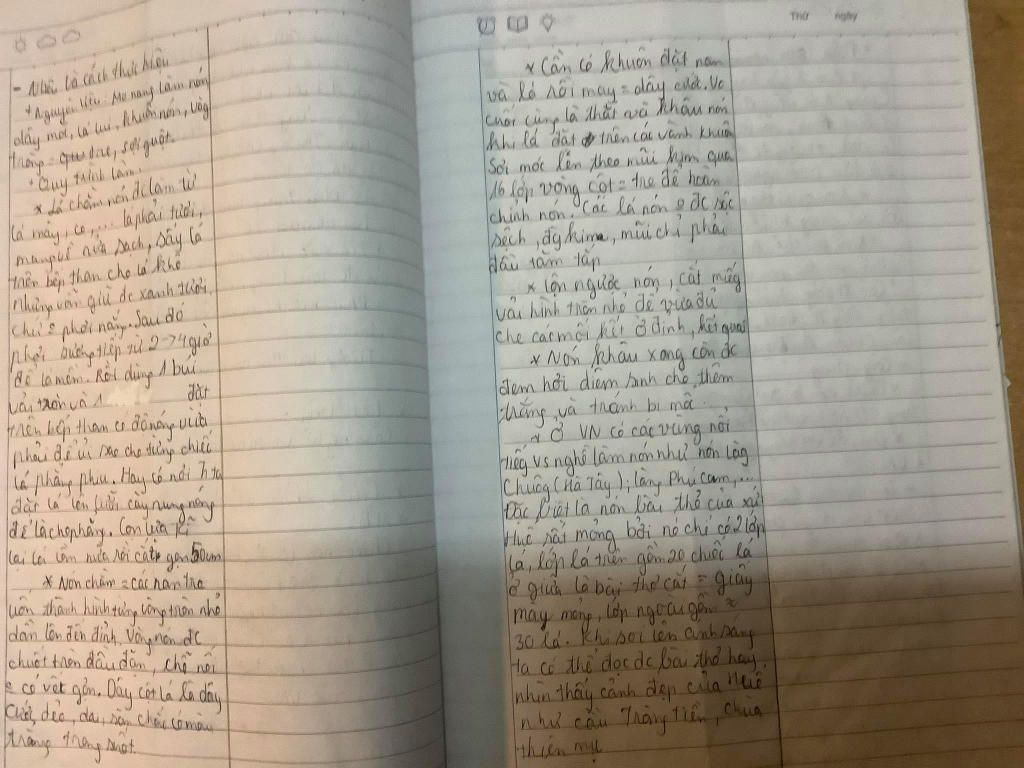 Thứ ngày
- Nhất là cách thức hiệu
+ Nguyên liệu: Mo nang làm nón
dây móc, lá lụi, khuôn nón, vòng
tròng = tre, sợi guột.
+ Quy trình làm.
* Lá chằm nón đc làm từ
lá mây, cọ,... lá phải tươi,
mang về rửa sạch, sấy lá
trên bếp than cho lá khô
nhưng vẫn giữ đc xanh tươi,
chứ o phơi nắng. Sau đó
phơi sương tiếp từ 2->4 giờ
để lá mềm. Rồi dùng 1 búi
vải tròn và 1 đặt
trên bếp than có độ nóng vừa
phải để ủi sao cho từng chiếc
lá phẳng phiu. Hay có nơi ngta
đặt lá lên lưỡi cày nung nóng
để là cho phẳng. Con lựa kĩ
lại lá lần nữa rồi cắt gần 50cm
* Nón chằm = các nan tre
uốn thành hình từng vòng tròn nhỏ
dần lên đến đỉnh. Vòng nón đc
chuốt tròn đều đặn, chỗ nối
o có vết gợn. Dây cột lá là dây
cước, dẻo, dai, săn chắc có màu
trắng trong suốt
* Cần có khuôn đặt nan
và lá rồi may = dây cước. Vc
cuối cùng là thắt và khâu nón
khi lá đặt trên các vành khuôn
Sợi móc len theo mũi kim qua
16 lớp vòng cột = tre để hoàn
chỉnh nón. Các lá nón o đc xộc
xệch, đg kim, mũi chỉ phải
đều tăm tắp
* Lộn ngược nón, cắt miếng
vải hình tròn nhỏ để vừa đủ
che các mối kết ở đỉnh, kết quai
* Nón khâu xong còn đc
đem hơi diêm sinh cho thêm
trắng và tránh bị mốc.
* Ở VN có các vùng nổi
tiếng vs nghề làm nón như nón làng
Chuông (Hà Tây); làng Phú Cam,...
Đặc biệt là nón bài thơ của xứ
Huế rất mỏng bởi nó chỉ có 2 lớp
lá, lớp lá trên gồm 20 chiếc lá
ở giữa là bài thơ cắt = giấy
mỏng, lớp ngoài gồm
30 lá. Khi soi lên ánh sáng
ta có thể đọc đc bài thơ hay
nhìn thấy cảnh đẹp của Huế
như cầu Tràng Tiền, chùa
thiên mụ